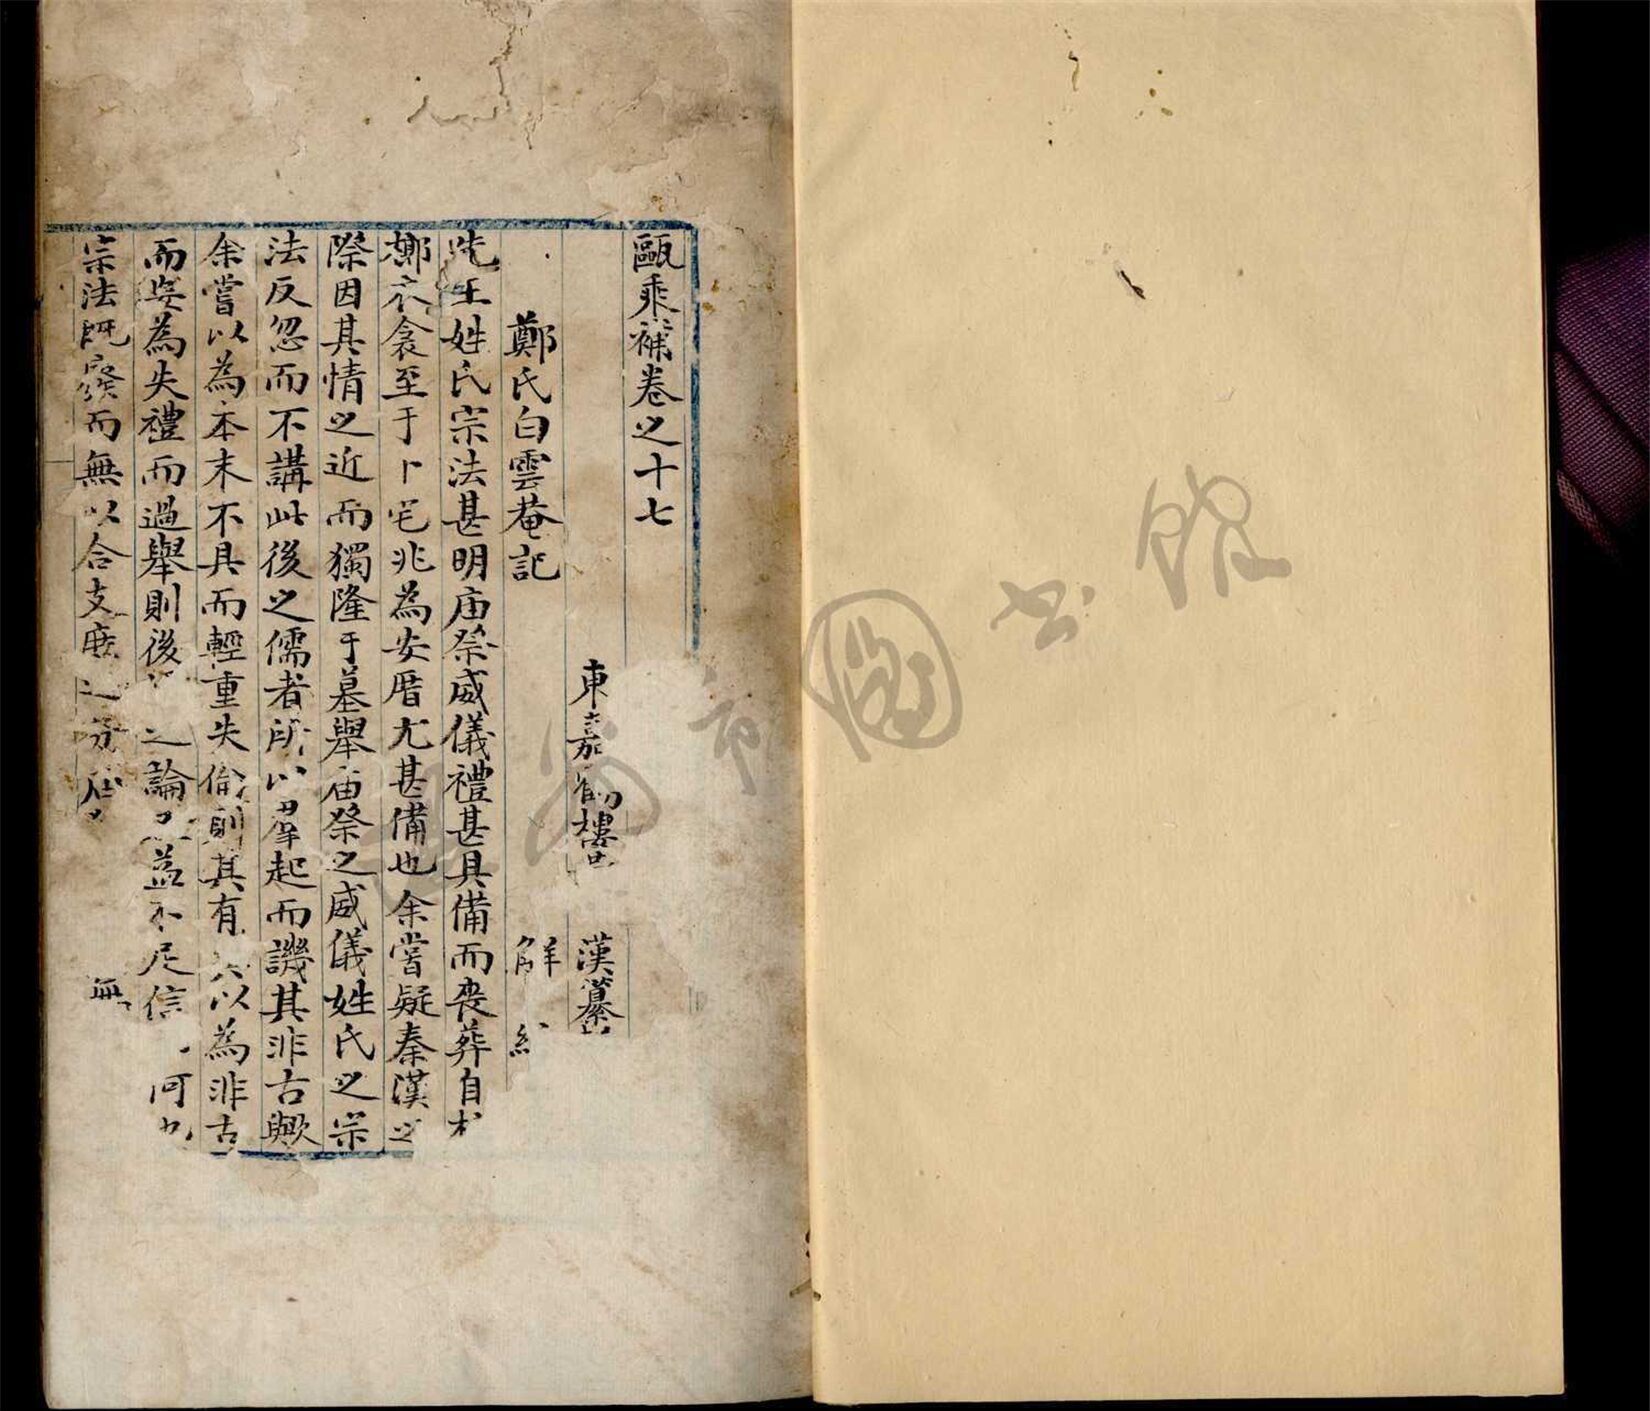 甌乘補卷之十七
東嘉鶴樓 漢纂
鄭氏白雲菴記 解
先王姓氏宗法甚明庙祭威儀禮甚具備而喪葬自
槨衣衾至于卜宅兆為安厝尤甚備也余嘗疑秦漢之
際因其情之近而獨隆于墓舉庙祭之威儀姓氏之宗
法反忽而不講此後之儒者所以羣起而譏其非古歟
余嘗以為本末不具而輕重失倫則其有 以為非古
而安為失禮而過舉則後 之論 益不足信 何也
宗法既廢而無以合支庶之分 無
圖书馆